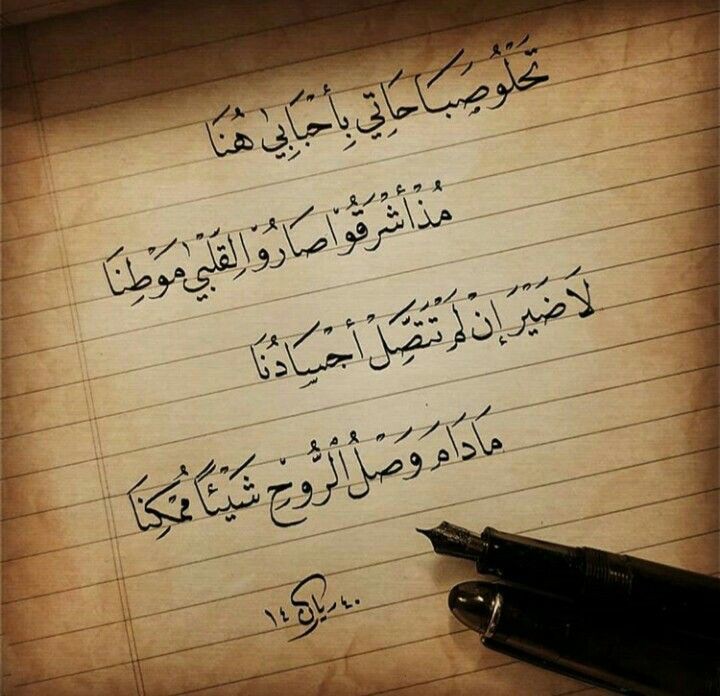 تَحْلُو صِبَاحَاتِي بِأَحْبَابِيْ هُنَا
مُذْ أَشْرَقُوْا صَارُوْا لِقَلْبِيْ مَوْطِنَا
لَا ضَيْرَ إِنْ لَمْ تَتَّصِلْ أَجْسَادُنَا
مَادَامَ وَصْلُ الْرُّوْحِ شَيْئاً مُمْكِنَا